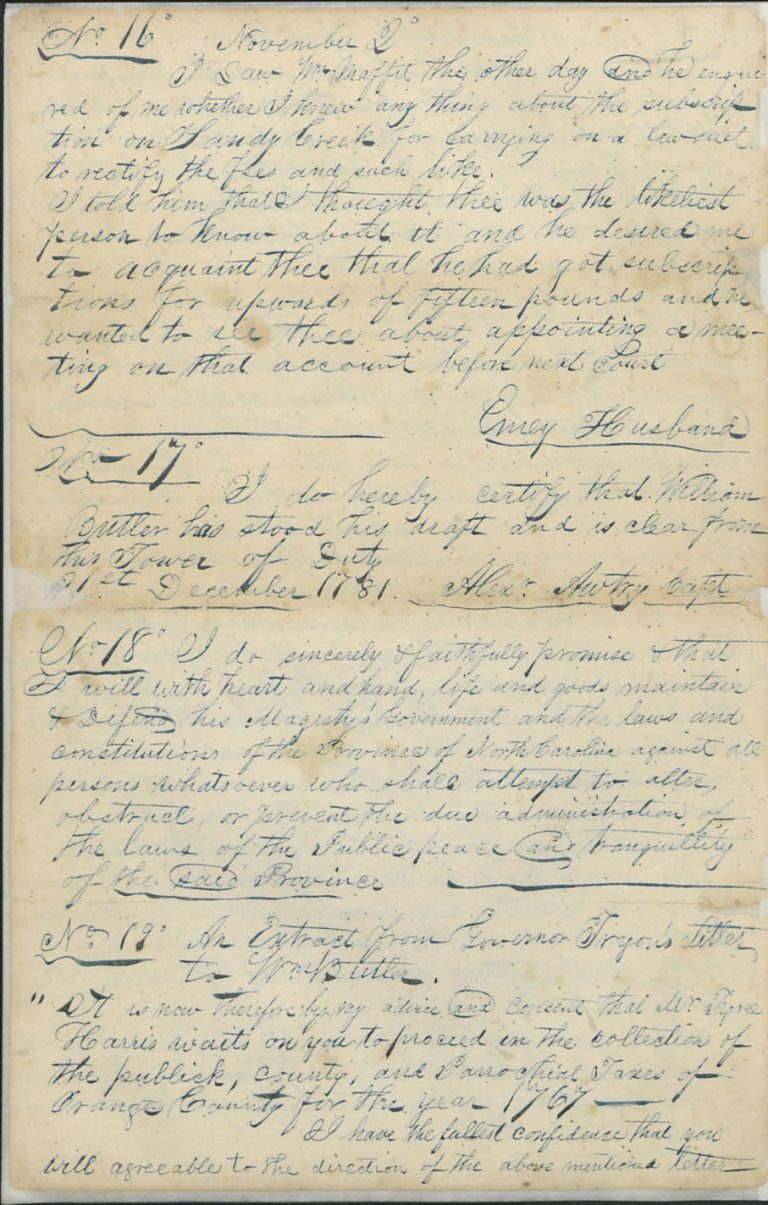 No 16° November 2°
I Saw Mr Maffit the other day and he enqui
red of me whether I knew any thing about the subscrip
tion on Sandy Creek for carrying on a lawsuit
to rectify the fees and such like.
I told him that I thought thee was the likeliest
person to know about it and he desired me
to acquaint thee that he had got subscrip
tions for upwards of fifteen pounds and he
wanted to see thee about appointing a mee-
ting on that account before next Court
Emey Husband
No 17°
I do hereby certify that William
Butler has stood his draft and is clear from
this Tower of Duty
21st December 1781. Alexr Awtry Capt
No 18° I do sincerely & faithfully promise & that
I will with heart and hand, life and goods maintain
& Defend his Magesty's Government and the laws and
constitutions of the Province of North Caroline against all
persons whatsoever who shall attempt to alter,
obstruct, or prevent the due administration of
the laws of the Public peace and tranquillity
of the said Province
No 19° An Extract from Governor Tryon's letter
to Wm Butler.
" It is now therefore by my advice and consent that Mr Tyree
Harris waits on you to proceed in the collection of
the publick, county, and Parrochial Taxes of
Orange County for the year 1767
I have the fullest confidence that you
will agreeable to the direction of the above mentioned letter